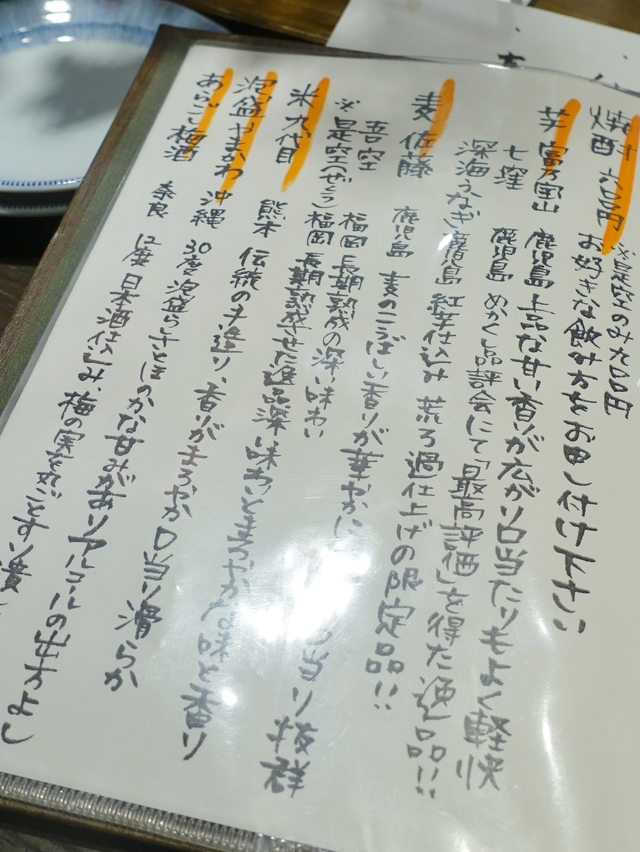 焼酎 六〇〇円 ※是空のみ九〇〇円
お好きな飲み方をお申し付け下さい
芋 富乃宝山 鹿児島 上品な甘い香りが広がり口当たりもよく軽快
七窪 鹿児島 めかくし品評会にて「最高評価」を得た逸品!!
深海うなぎ 鹿児島 紅芋仕込み 荒ろ過仕上げの限定品!!
麦 佐藤 鹿児島 麦のこうばしい香りが華やかに
吾空 福岡 長期熟成の深い味わい
※是空(ぜくう) 福岡 長期熟成させた逸品深い味わい 当り抜群
米 九代目 熊本 伝統の手造り、香りがまろやか
泡盛 やまかわ 沖縄 30度 泡盛らしさとほのかな甘みがあり
あらごし梅酒 奈良 12度 日本酒仕込み、梅の実を丸ごとすり潰し